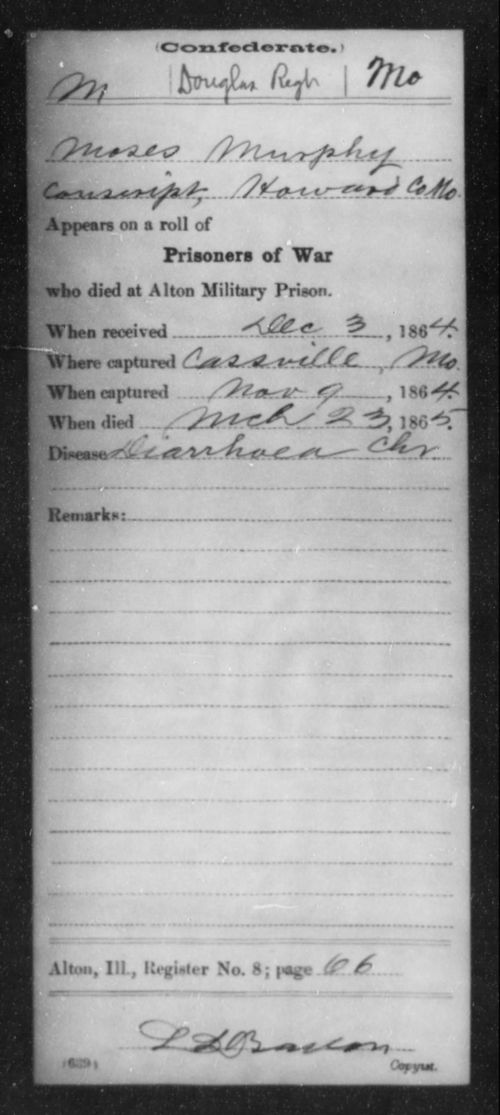 (Confederate.)
M | Douglas Regt | Mo
Moses Murphy
Conscript, Howard Co Mo.
Appears on a roll of
Prisoners of War
who died at Alton Military Prison.
When received Dec 3, 1864.
Where captured Cassville, Mo.
When captured Nov 9, 1864.
When died Mch 23, 1865.
Disease Diarrhoea Chr
Remarks:
Alton, Ill., Register No. 8; page 66
L D
(639)
Copyist.